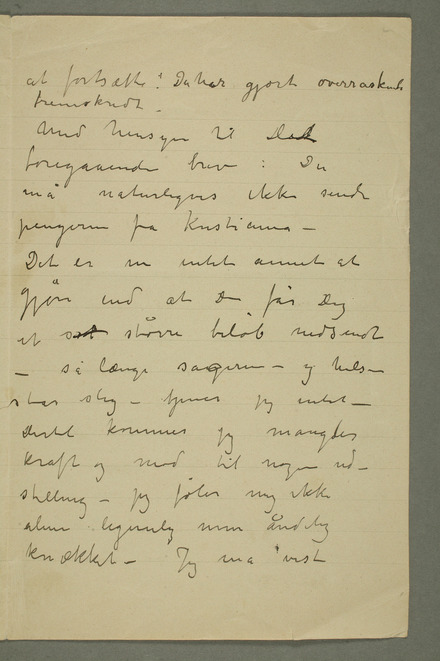 at fortsætte! Du har gjort overraskende
fremskridt –
Med hensyn til Det
foregaaende brev: Du
må naturligvis ikke sende
pengerne fra Kristiania –
Det er nu intet annet at
gjöre end at Du får Dig
et større beløb nedsendt
– så længe sagerne – og hels-
star slig – tjener jeg intet –
dertil kommer jeg mangler
kraft og mod til nogen ud-
stilling – jeg føler mig ikke
alene legemlig men åndelig
knækket – Jeg må vist